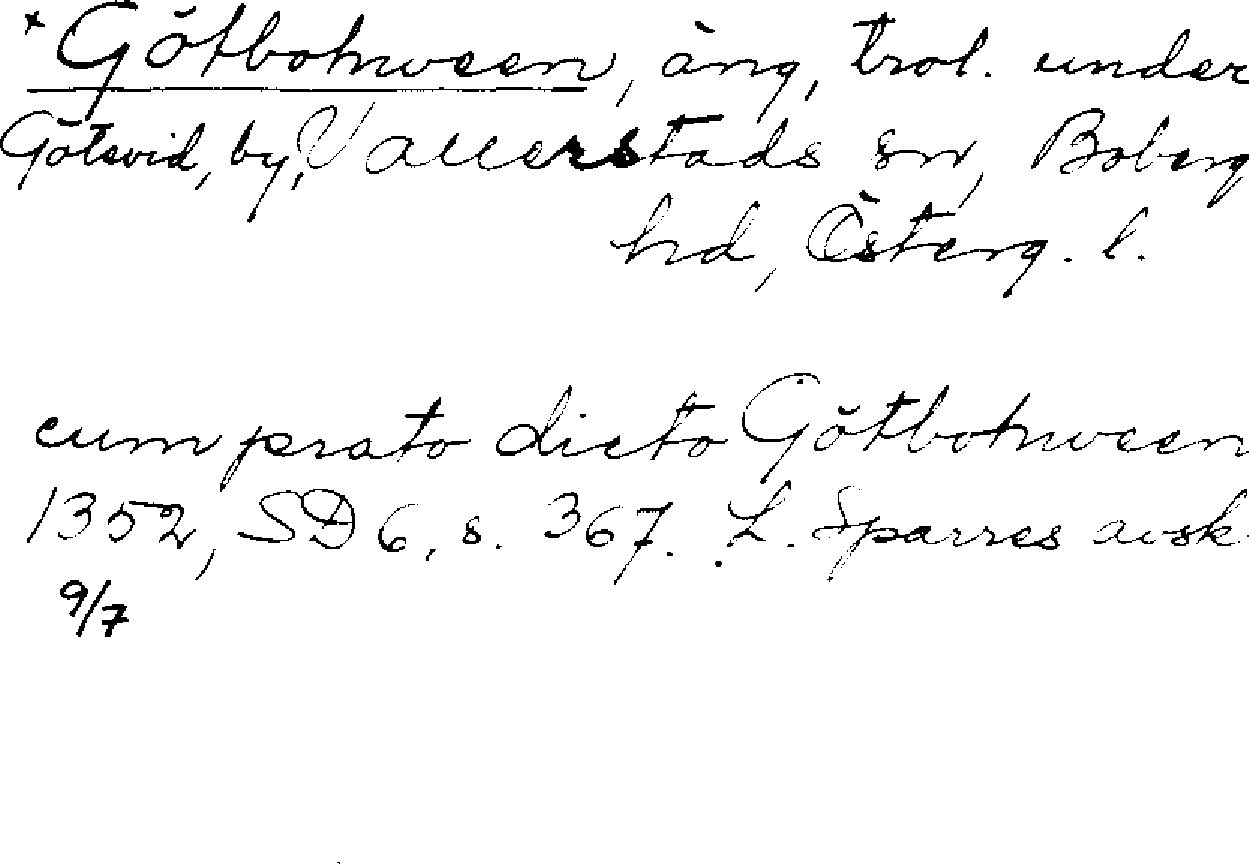 * Götbohween, äng, trol. under
Götevid, by, Vallerstads sn, Boberg
hd, Österg. l.
cum prato dicto Götbohween
1352, SD 6, s. 367. L. Sparres avsk.
9/7